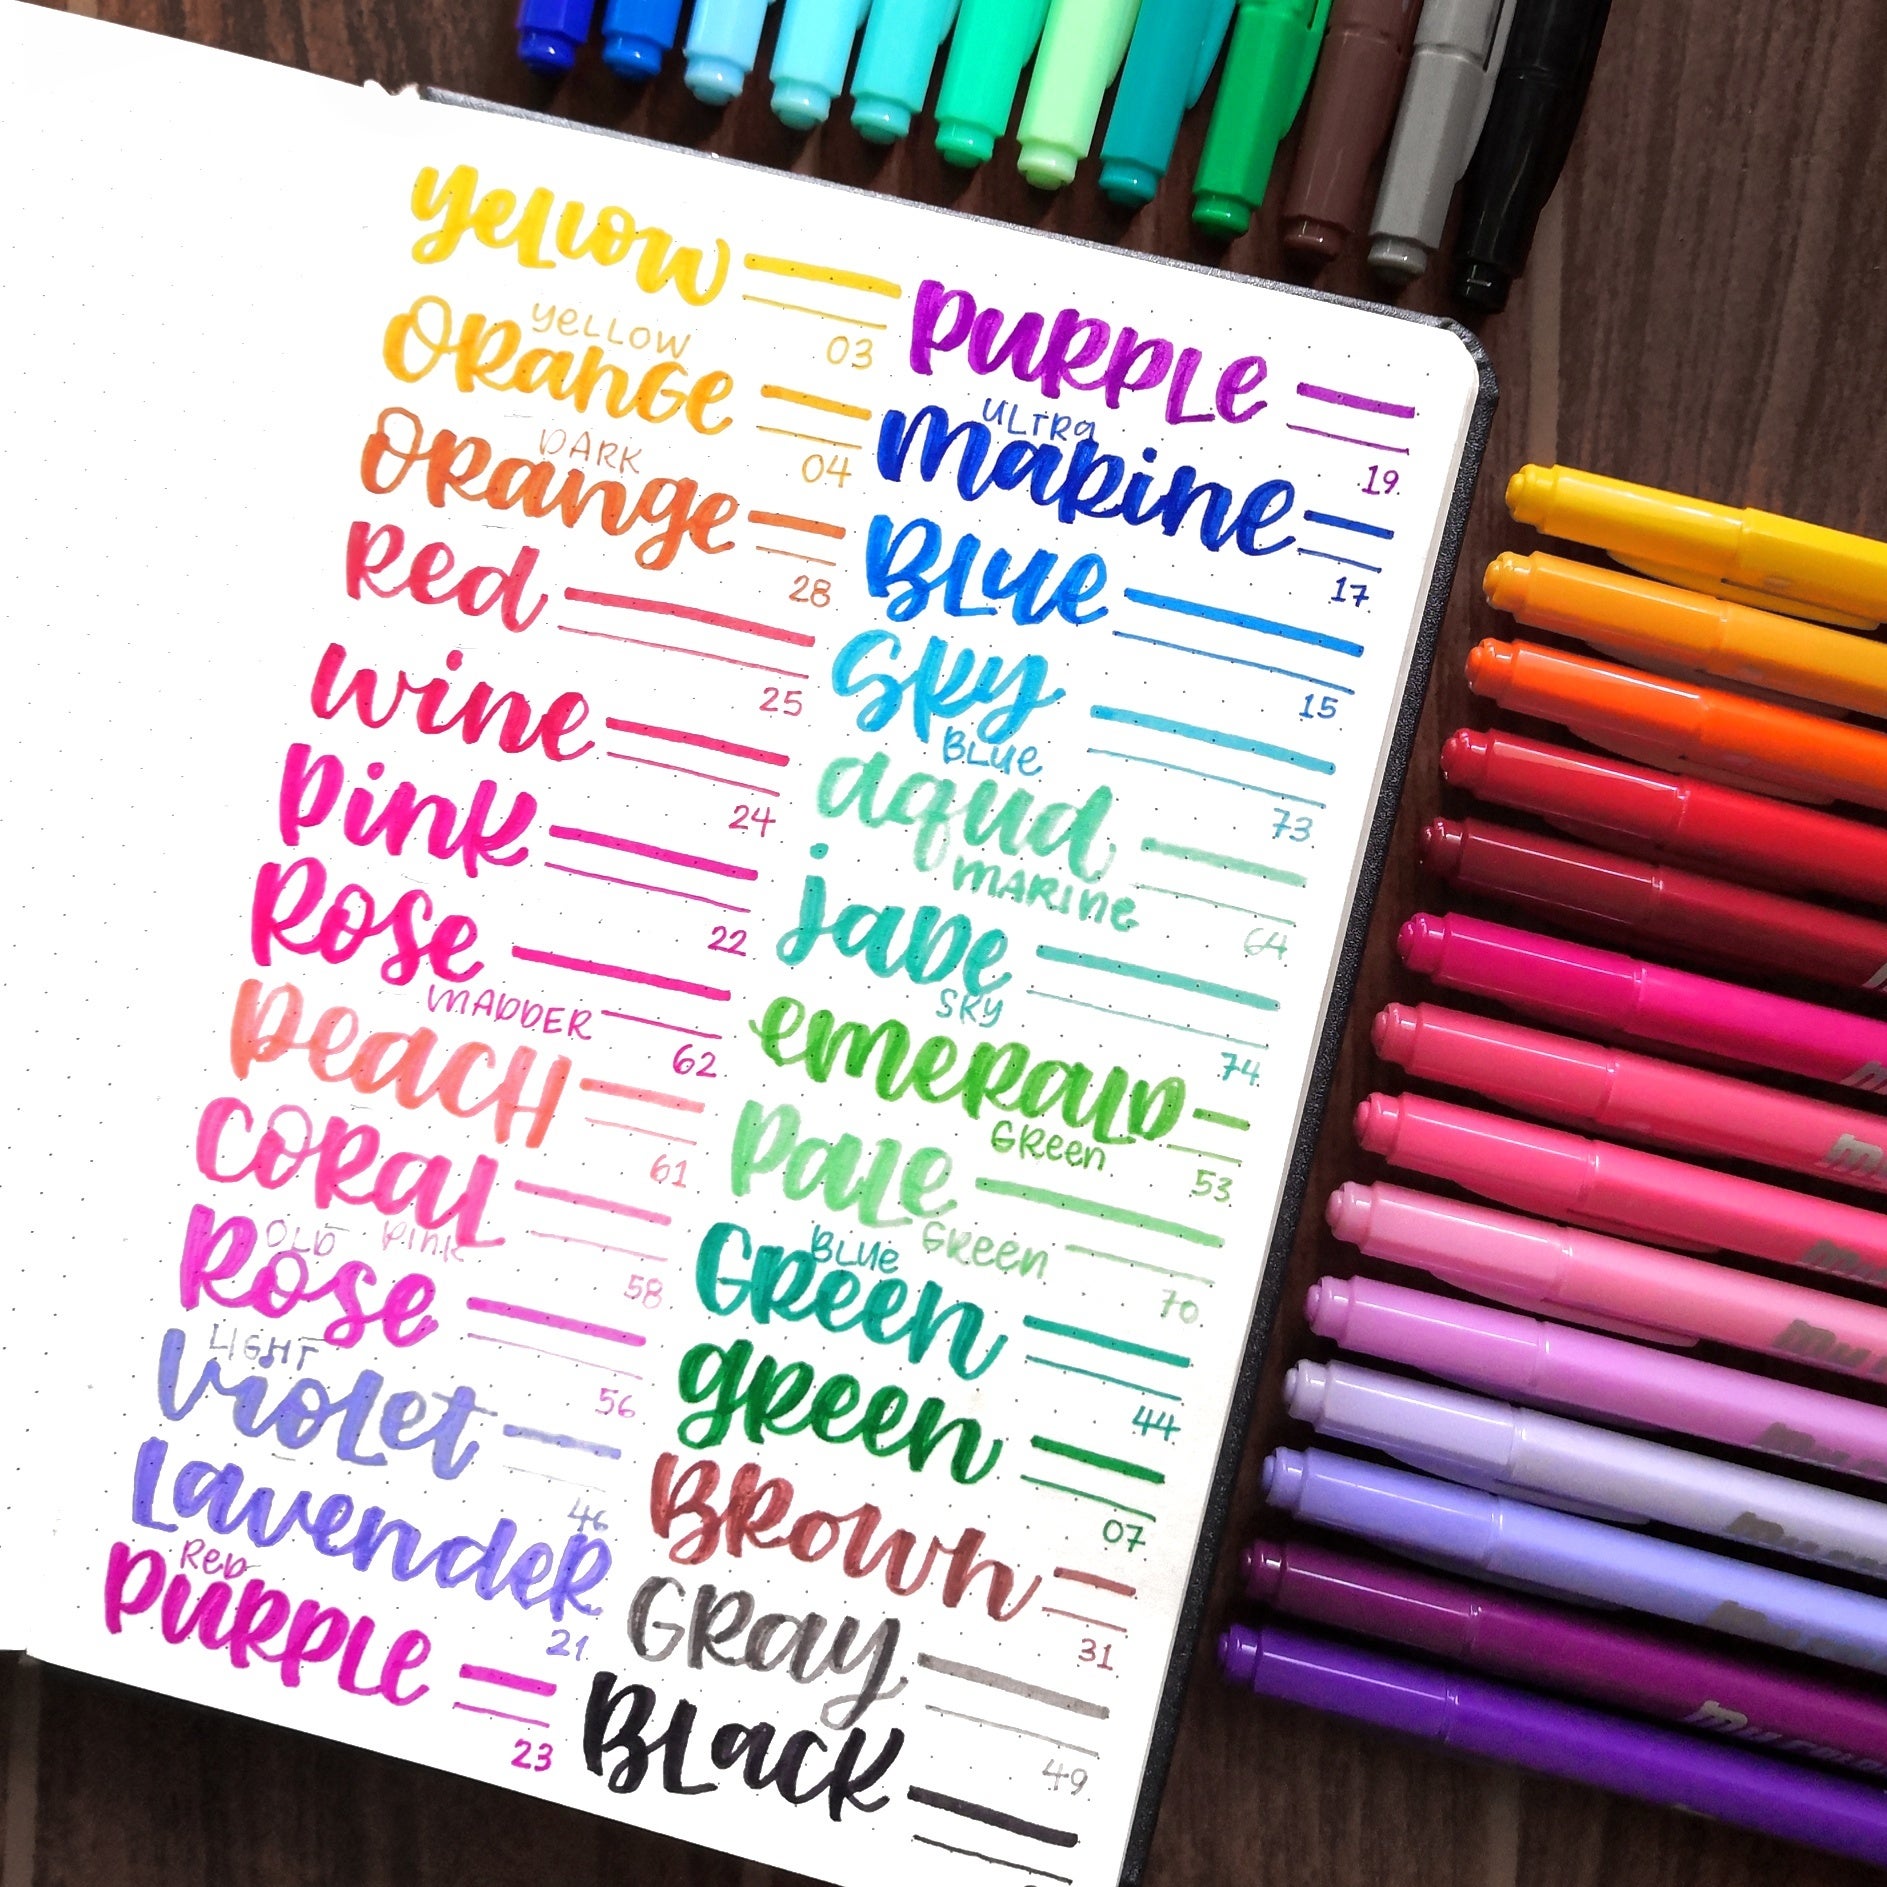 yellow
03
yellow
orange
04
dark
orange
28
red
25
wine
24
pink
22
rose
madder
62
peach
61
coral
pink
58
old
rose
56
light
violet
46
lavender
21
red
purple
23
purple
19
ultra
marine
17
blue
15
sky
blue
73
aqua
marine
64
jade
sky
74
emerald
green
53
pale
green
70
blue
green
44
green
07
brown
31
gray
49
black